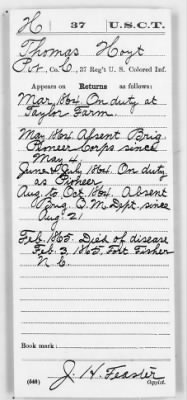 H 37 U.S.C.T.
Thomas Hoyt
Pvt., Co. C, 37 Reg't U. S. Colored Inf.
Appears on Returns as follows:
Mar, 1864. On duty at
Taylor Farm.
May 1864. Absent Brig
Pioneer Corps since
May 4,
June & July 1864. On duty
as Pioneer
Aug. to Oct 1864. Absent
Brig. Q. M. Dept. since
Aug. 21
Feb. 1865. Died of disease
Feb. 3, 1865, Fort Fisher
N. C.
Book mark:
(546) J. H. Feaster
Copyist.